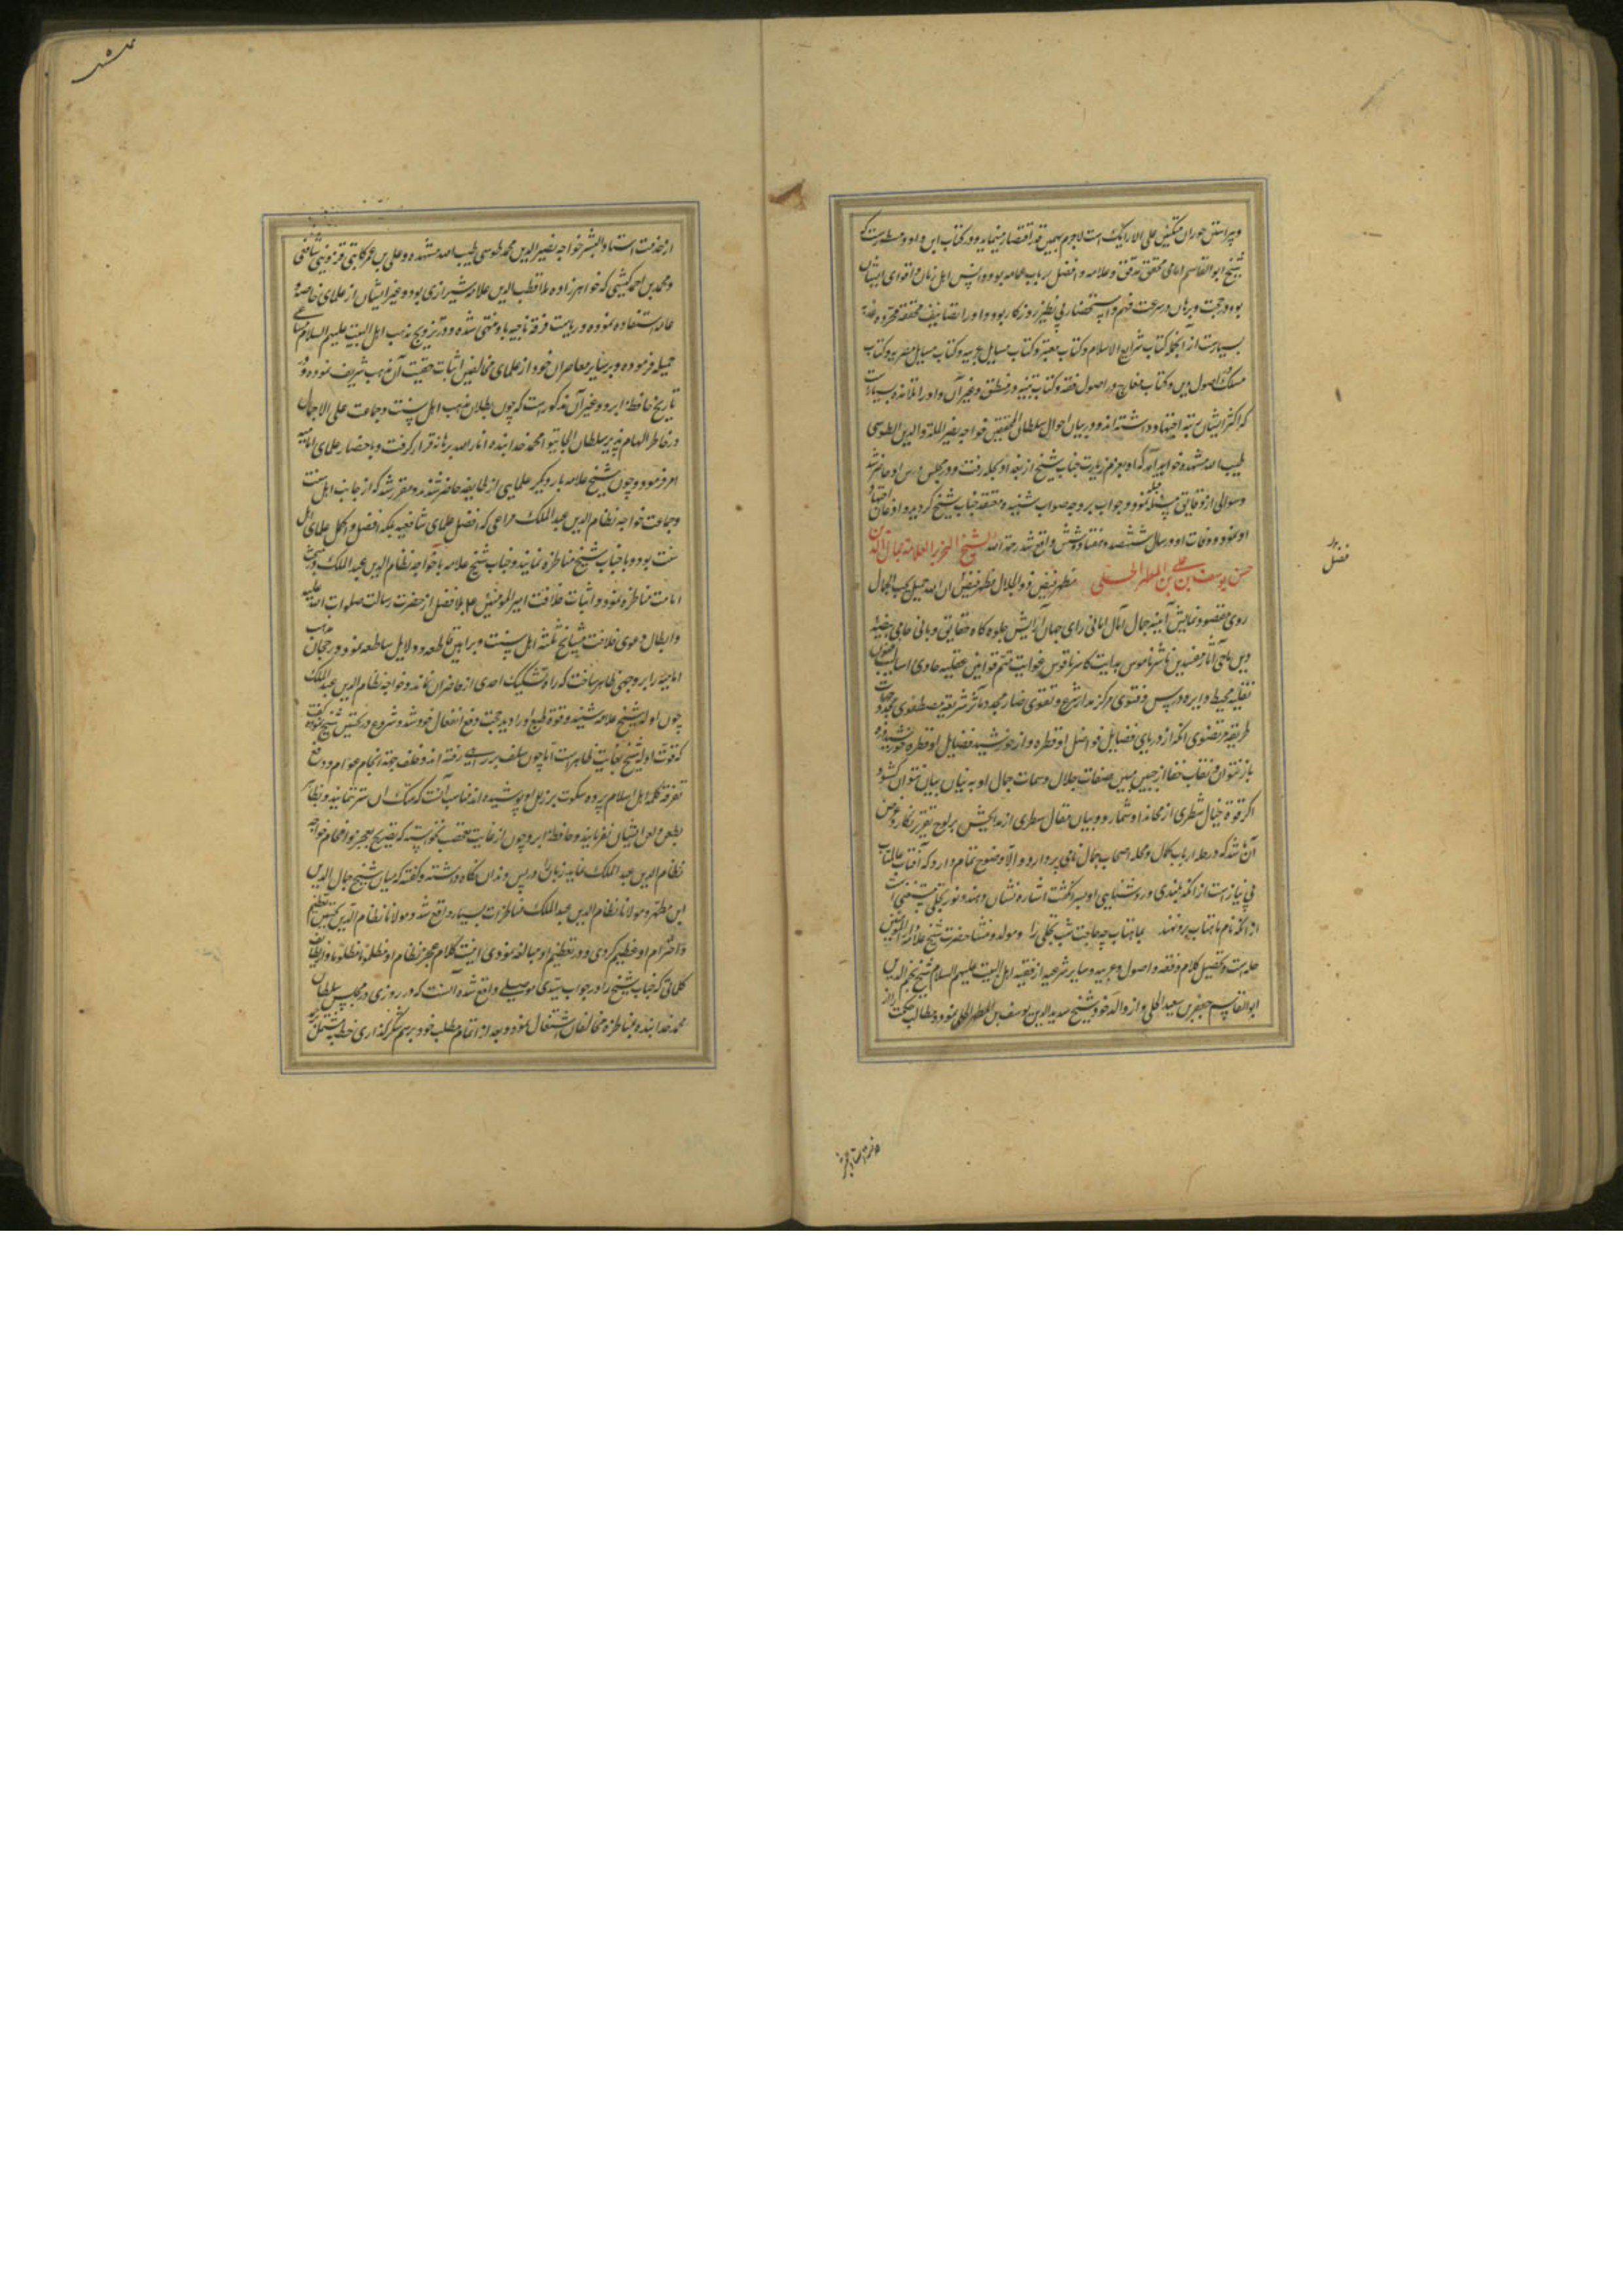 شیخ ابوالقاسم امامی محقق مدقق و علامه و افضل
بوده در حجت و برهان و سرعت فهم و استحضار بی نظیر روزگار بود و او را تصانیف محققه محرره
بسیارست از آنجمله کتاب شرایع الاسلام و کتاب معتبر و کتاب مسایل عزیه و کتاب مسایل مصریه و کتاب
مسلک در اصول دین و کتاب معارج در اصول فقه و کتاب در منطق و غیر آن و او را تلامذه بسیارست
که اکثر ایشان برتبه اجتهاد و در بیان احوال سلطان المحققین خواجه نصیر الملة والدین الطوسی
طیب الله مشهده خواهد آمد که او بعزم زیارت جناب شیخ از بغداد بحله رفت و در مجلس درس او حاضر شد
و سوالی از دقایق مسئله قبله نمود و جواب بر وجه صواب شنیده معتقد جناب شیخ گردید و اذعان اجتهاد
او نمود و وفات او در سال ششصد و هفتاد و شش واقع شد رحمة الله الشیخ النحریر العلامه جمال الدین
حسن بن یوسف بن علی بن المطهر الحلی مظهر فیض ذوالجلال مظهر فیض ان الله جمیل یحب الجمال
روی مقصود نمایش آینه جمال آمال امانی رای جهان آرایش جلوه گاه حقایق و معانی حامی بیضه
دین ماحی آثار مفسدین ناشر ناموس هدایت کاسر ناقوس غوایت متمم قوانین عقلیه حاوی اسالیب فنون
نقلیه محیط دایره درس و فتوی مرکز مدار شرع و تقوی مجدد مآثر شریعت مصطفوی محدد جهات
طریقه مرتضوی آنکه از دریای فضایل فواضل او قطره و از خورشید فضایل او
باز نتوان نقاب خفا از جبین مبین صفات جلال و سمات جمال او به بنان بیان نتوان گشود
اگر قوة خیال شطری از محامد او شمارد و بیان مقال سطری از مدایحش بر لوح تقریر نگارد غرض
آن باشد که در حله ارباب کمال و محله اصحاب جمال نامی برآورد والا وضوح تمام دارد که آفتاب عالمتاب
بی نیاز است از آنکه بلندی و روشنایی او بسر انگشت اشاره نشان دهند و نور تجلی مستغنی است
از آنکه نام ماهتاب برو نهند بماهتاب چه حاجت شب تجلی را و مولد و منشا حضرت شیخ علامه
حله است و تحصیل کلام و فقه و اصول و عربیه و سایر شرعیه از فقیه اهل البیت علیهم السلام شیخ نجم الدین
ابوالقاسم جعفر بن سعید الحلی و از والد خود شیخ سدید الدین یوسف بن المطهر الحلی نمود و مطالب حکمت را از
فضل
از خدمت استاد البشر خواجه نصیر الدین محمد طوسی طیب الله مشهده و علی بن عمر کاتبی قزوینی شافعی
و محمد بن احمد کیشی که خواهرزاده ملا قطب الدین علامه شیرازی بود و غیر ایشان از علمای خاصه و
عامه استفاده نموده و ریاست فرقه ناجیه باو منتهی شده و در ترویج مذهب اهل البیت علیهم السلام مساعی
جمیله فرموده و بر سایر معاصران خود از علمای مخالفین اثبات حقیت آن مذهب شریف نموده و در
تاریخ حافظ ابرو و غیر آن مذکورست که چون بطلان مذهب اهل سنت و جماعت علی الاجمال
در خاطر الهام پذیر سلطان الجایتو محمد خدابنده انار الله برهانه قرار گرفت و باحضار علمای امامیه
امر فرمود و چون شیخ علامه با دیگر علمایی از طایفه حاضر شدند و مقرر شد که از جانب اهل سنت
و جماعت خواجه نظام الدین عبد الملک مراغی که افضل علمای شافعیه بلکه افضل و اکمل علمای اهل
سنت بود و با جناب شیخ مناظره نمایند و جناب شیخ علامه با خواجه نظام الدین عبد الملک در مبحث
امامت مناظره نمود و اثبات خلافت امیر المومنین ع بلا فصل از حضرت رسالت صلوات الله علیه
و ابطال دعوی خلافت مشایخ ثلثه اهل سنت و براهین قاطعه و دلایل ساطعه نمود و رجحان مذهب
امامیه را بر وجهی ظاهر ساخت که راه تشکیک احدی از حاضران نماند و خواجه نظام الدین عبد الملک
چون ادله شیخ علامه شنید و قوة طبع او را دید جهت دفع انفعال خود شد و شروع در تحسین شیخ نموده گفت
که قوت ادله شیخ بغایت ظاهرست اما چون سلف بر راهی رفته اند و خلف جهة الجام عوام و دفع
تفرقه کلمه اهل اسلام پرده سکوت بر زلل او پوشیده اند مناسب آنست که هتک آن ستر ننمایند و بظاهر
بطعن و لعن ایشان نفرمایند و حافظ ابرو چون از غایت تعصب نخواسته که تصریح بعجز و افحام خواجه
نظام الدین عبد الملک نماید زبان در پس دندان نگاه داشته و گفته که میان شیخ جمال الدین
ابن مطهر و مولانا نظام الدین عبد الملک مناظرات بسیار واقع شد و مولانا نظام الدین بحسن تعظیم
و احترام او عظیم کردی و در تعظیم او مبالغه نمودی
کلماتی که جناب شیخ را در جواب سیدی موصلی واقع شده آنست که در روزی در مجلس سلطان
محمد خدابنده بمناظره مخالفان اشتغال نموده و بعد از اتمام مطلب خود برسم شکرگذاری خطبه مشتمل بر